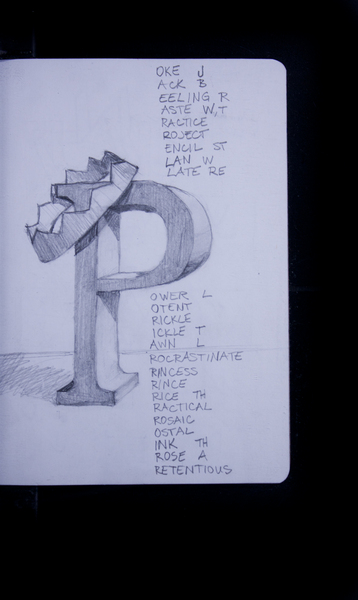 OKE J
ACK B
EELING R
ASTE W,T
RACTICE
ROJECT
ENCIL ST
LAN W
LATE RE
P
OWER L
OTENT
RICKLE
ICKLE T
AWN L
ROCRASTINATE
RINCESS
RINCE
RICE TH
RACTICAL
ROSAIC
OSTAL
INK TH
ROSE A
RETENTIOUS